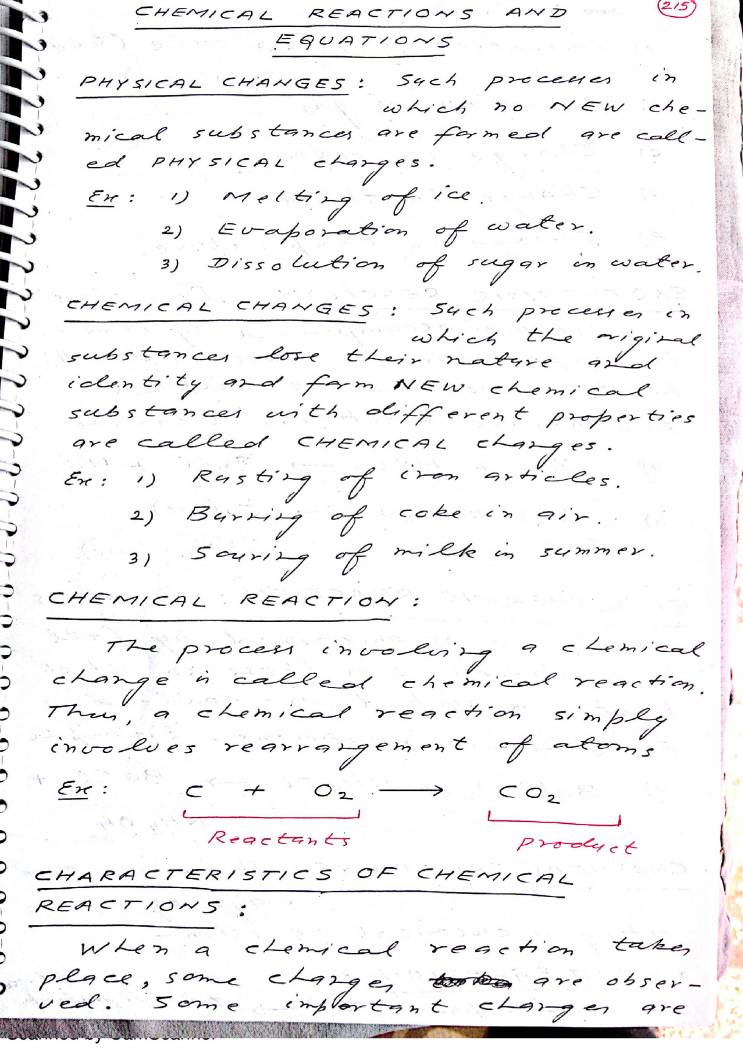 CHEMICAL REACTIONS AND
215
EQUATIONS
PHYSICAL CHANGES : Such processes in
which no NEW che-
mical substances are formed are call-
ed PHYSICAL changes.
Ex : 1) Melting of ice.
2) Evaporation of water.
3) Dissolution of sugar in water.
CHEMICAL CHANGES : Such processes in
which the original
substances lose their nature and
identity and form NEW chemical
substances with different properties
are called CHEMICAL changes.
Ex : 1) Rusting of iron articles.
2) Burning of coke in air.
3) Souring of milk in summer.
CHEMICAL REACTION :
The process involving a chemical
change is called chemical reaction.
Thus, a chemical reaction simply
involves rearrangement of atoms
Ex : C + O₂ → CO₂
Reactants Product
CHARACTERISTICS OF CHEMICAL
REACTIONS :
When a chemical reaction takes
place, some changes are obser-
ved. Some important changes are